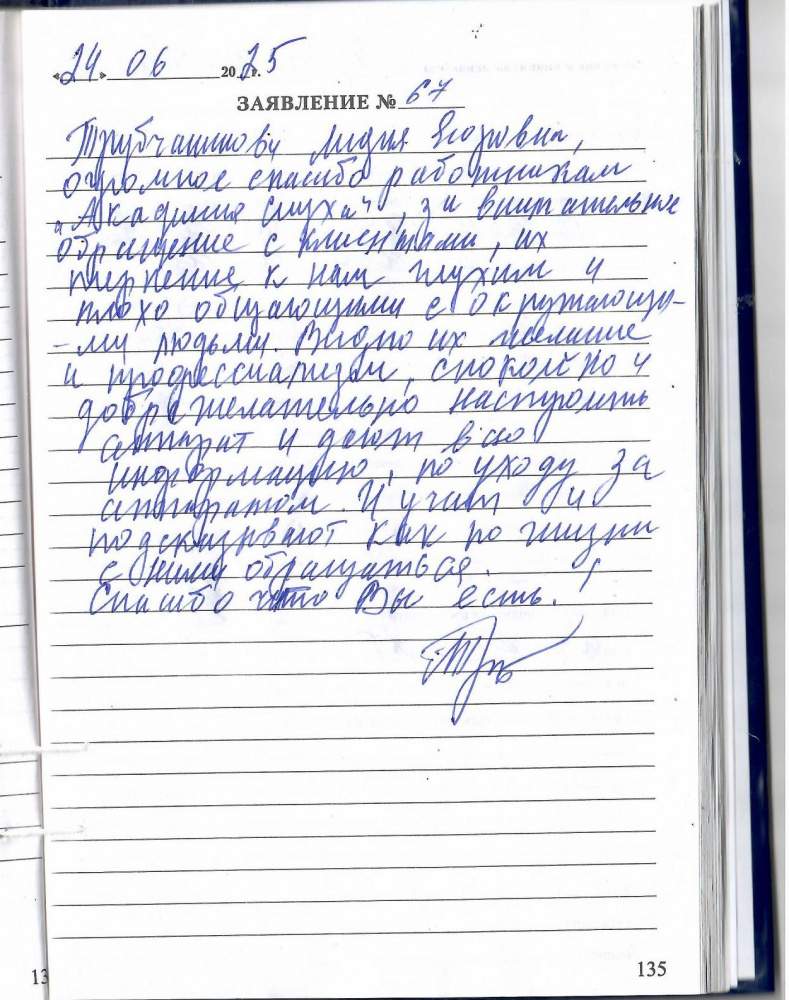 «24» 06 2025 г.
ЗАЯВЛЕНИЕ № 67
Лидия Егоровна,
огромное спасибо работникам
"Академия слуха", за внимательное
обращение с клиентами, их
терпение к нам глухим и
плохо общающими с окружающи-
-ми людьми. Видно их желание
и профессиализм, спокойно и
доброжелательно настроить
аппарат и дают всю
информацию, по уходу за
аппаратом. И учат и
подсказывают как по жизни
с ними обращаться.
Спасибо что Вы есть!
135